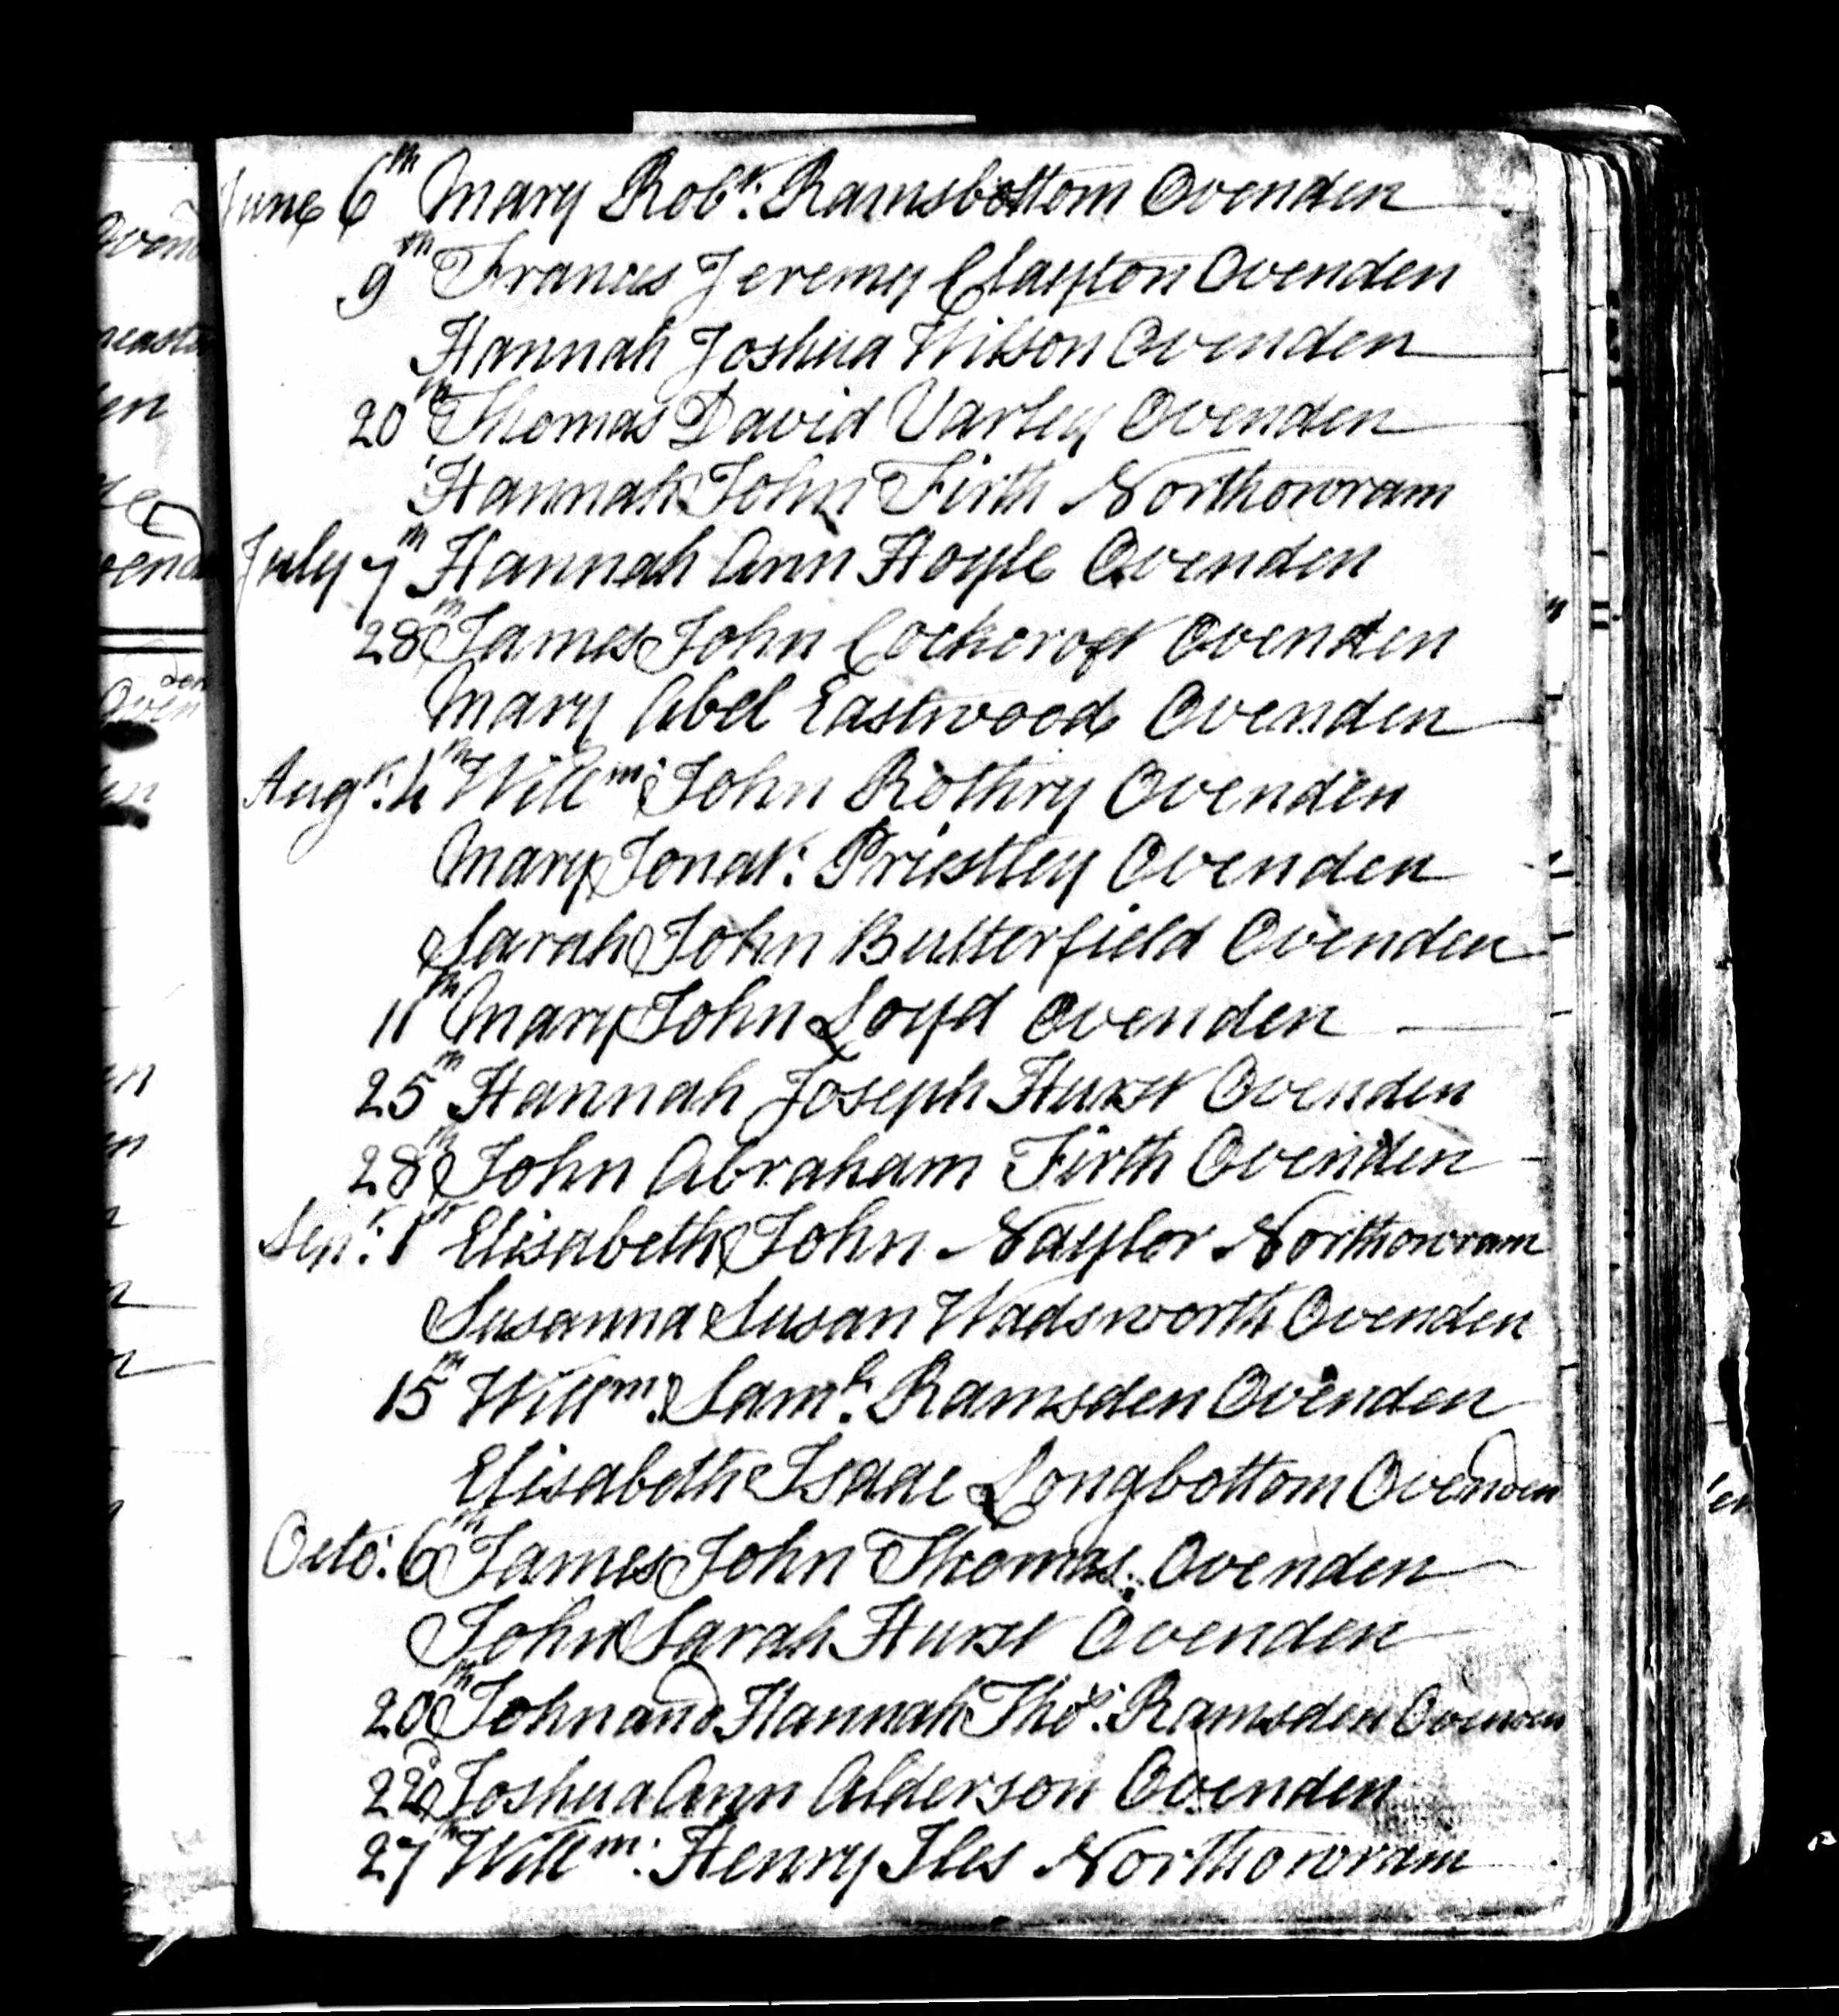 June 6th Mary Robt: Ramsbottom Ovenden
9th Frances Jeremy Clayton Ovenden
Hannah Joshua Wilson Ovenden
20th Thomas David Varley Ovenden
Hannah John Firth Northowram
July 7th Hannah Ann Hoyle Ovenden
28th James John Cockcroft Ovenden
Mary Abel Eastwood Ovenden
Augt: 4th Willm: John Rothry Ovenden
Mary Jonat: Priestley Ovenden
Sarah John Butterfield Ovenden
11th Mary John Loyd Ovenden
25th Hannah Joseph Hurst Ovenden
28th John Abraham Firth Ovenden
Sept: 1st Elisabeth John Naylor Northowram
Susanna Susan Wadsworth Ovenden
15th Willm: Saml: Ramsden Ovenden
Elisabeth Isaac Longbottom Ovenden
Octo: 6th James John Thomas Ovenden
John Sarah Hurst Ovenden
20th John and Hannah Thos: Ramsden Ovenden
22d Joshua Ann Alderson Ovenden
27th Willm: Henry Iles Northowram